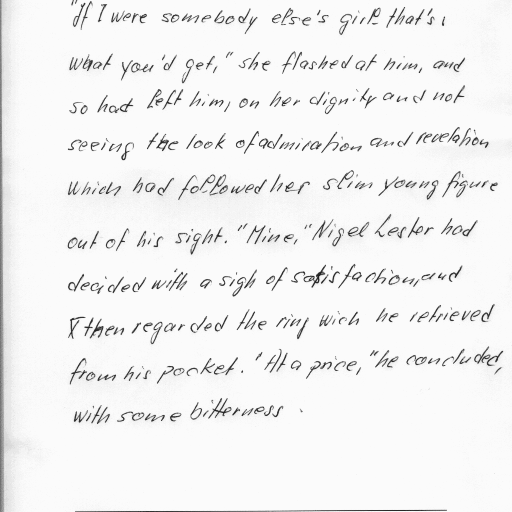 "If I were somebody else's girl that's
what you'd get," she flashed at him, and
so had left him, on her dignity and not
seeing the look of admiration and revelation
which had followed her slim young figure
out of his sight. "Mine," Nigel Lester had
decided with a sigh of satisfaction, and
then regarded the ring wich he retrieved
from his pocket. 'At a price," he concluded,
with some bitterness.